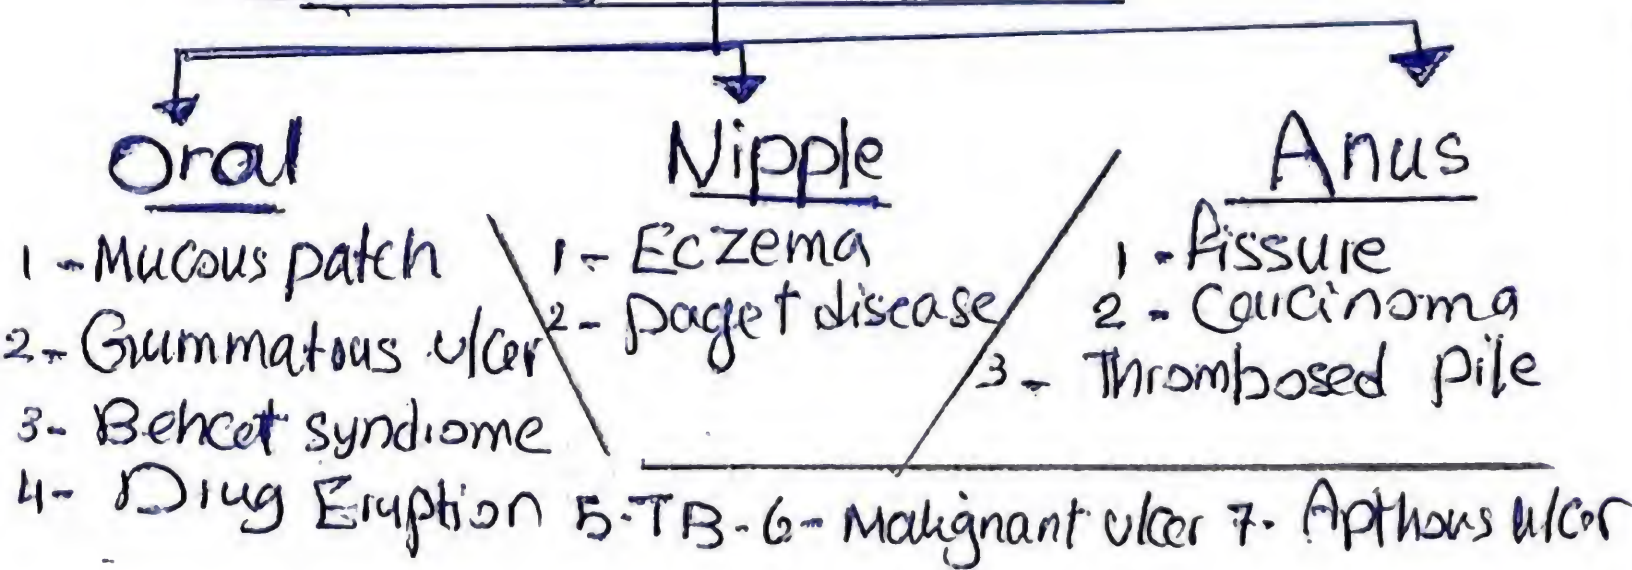 Oral
Nipple
Anus
1 - Mucous patch
2 - Gummatous ulcer
3 - Behcet syndrome
4 - Drug Eruption 5 - TB - 6 - Malignant ulcer 7 - Apthous ulcer
1 - Eczema
2 - paget disease
1 - Fissure
2 - Carcinoma
3 - Thrombosed pile